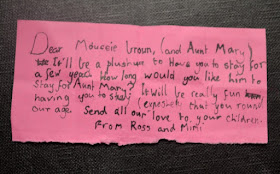 Dear Mouccie (and Aunt Mary)
It'll be a plushure to Have you to stay for
a few years How long would you like him to
stay for Aunt Mary? It will be really fun
having you to stay (exposely that you round
our age. Send all our love to your children.
From Ross and Mimi